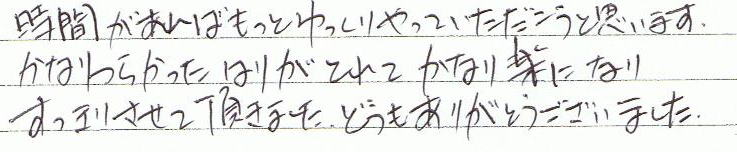 時間があればもっとゆっくりやっていただこうと思います.
かなりつらかったはりがとれてかなり楽になり
すっきりさせて頂きました.どうもありがとうございました.